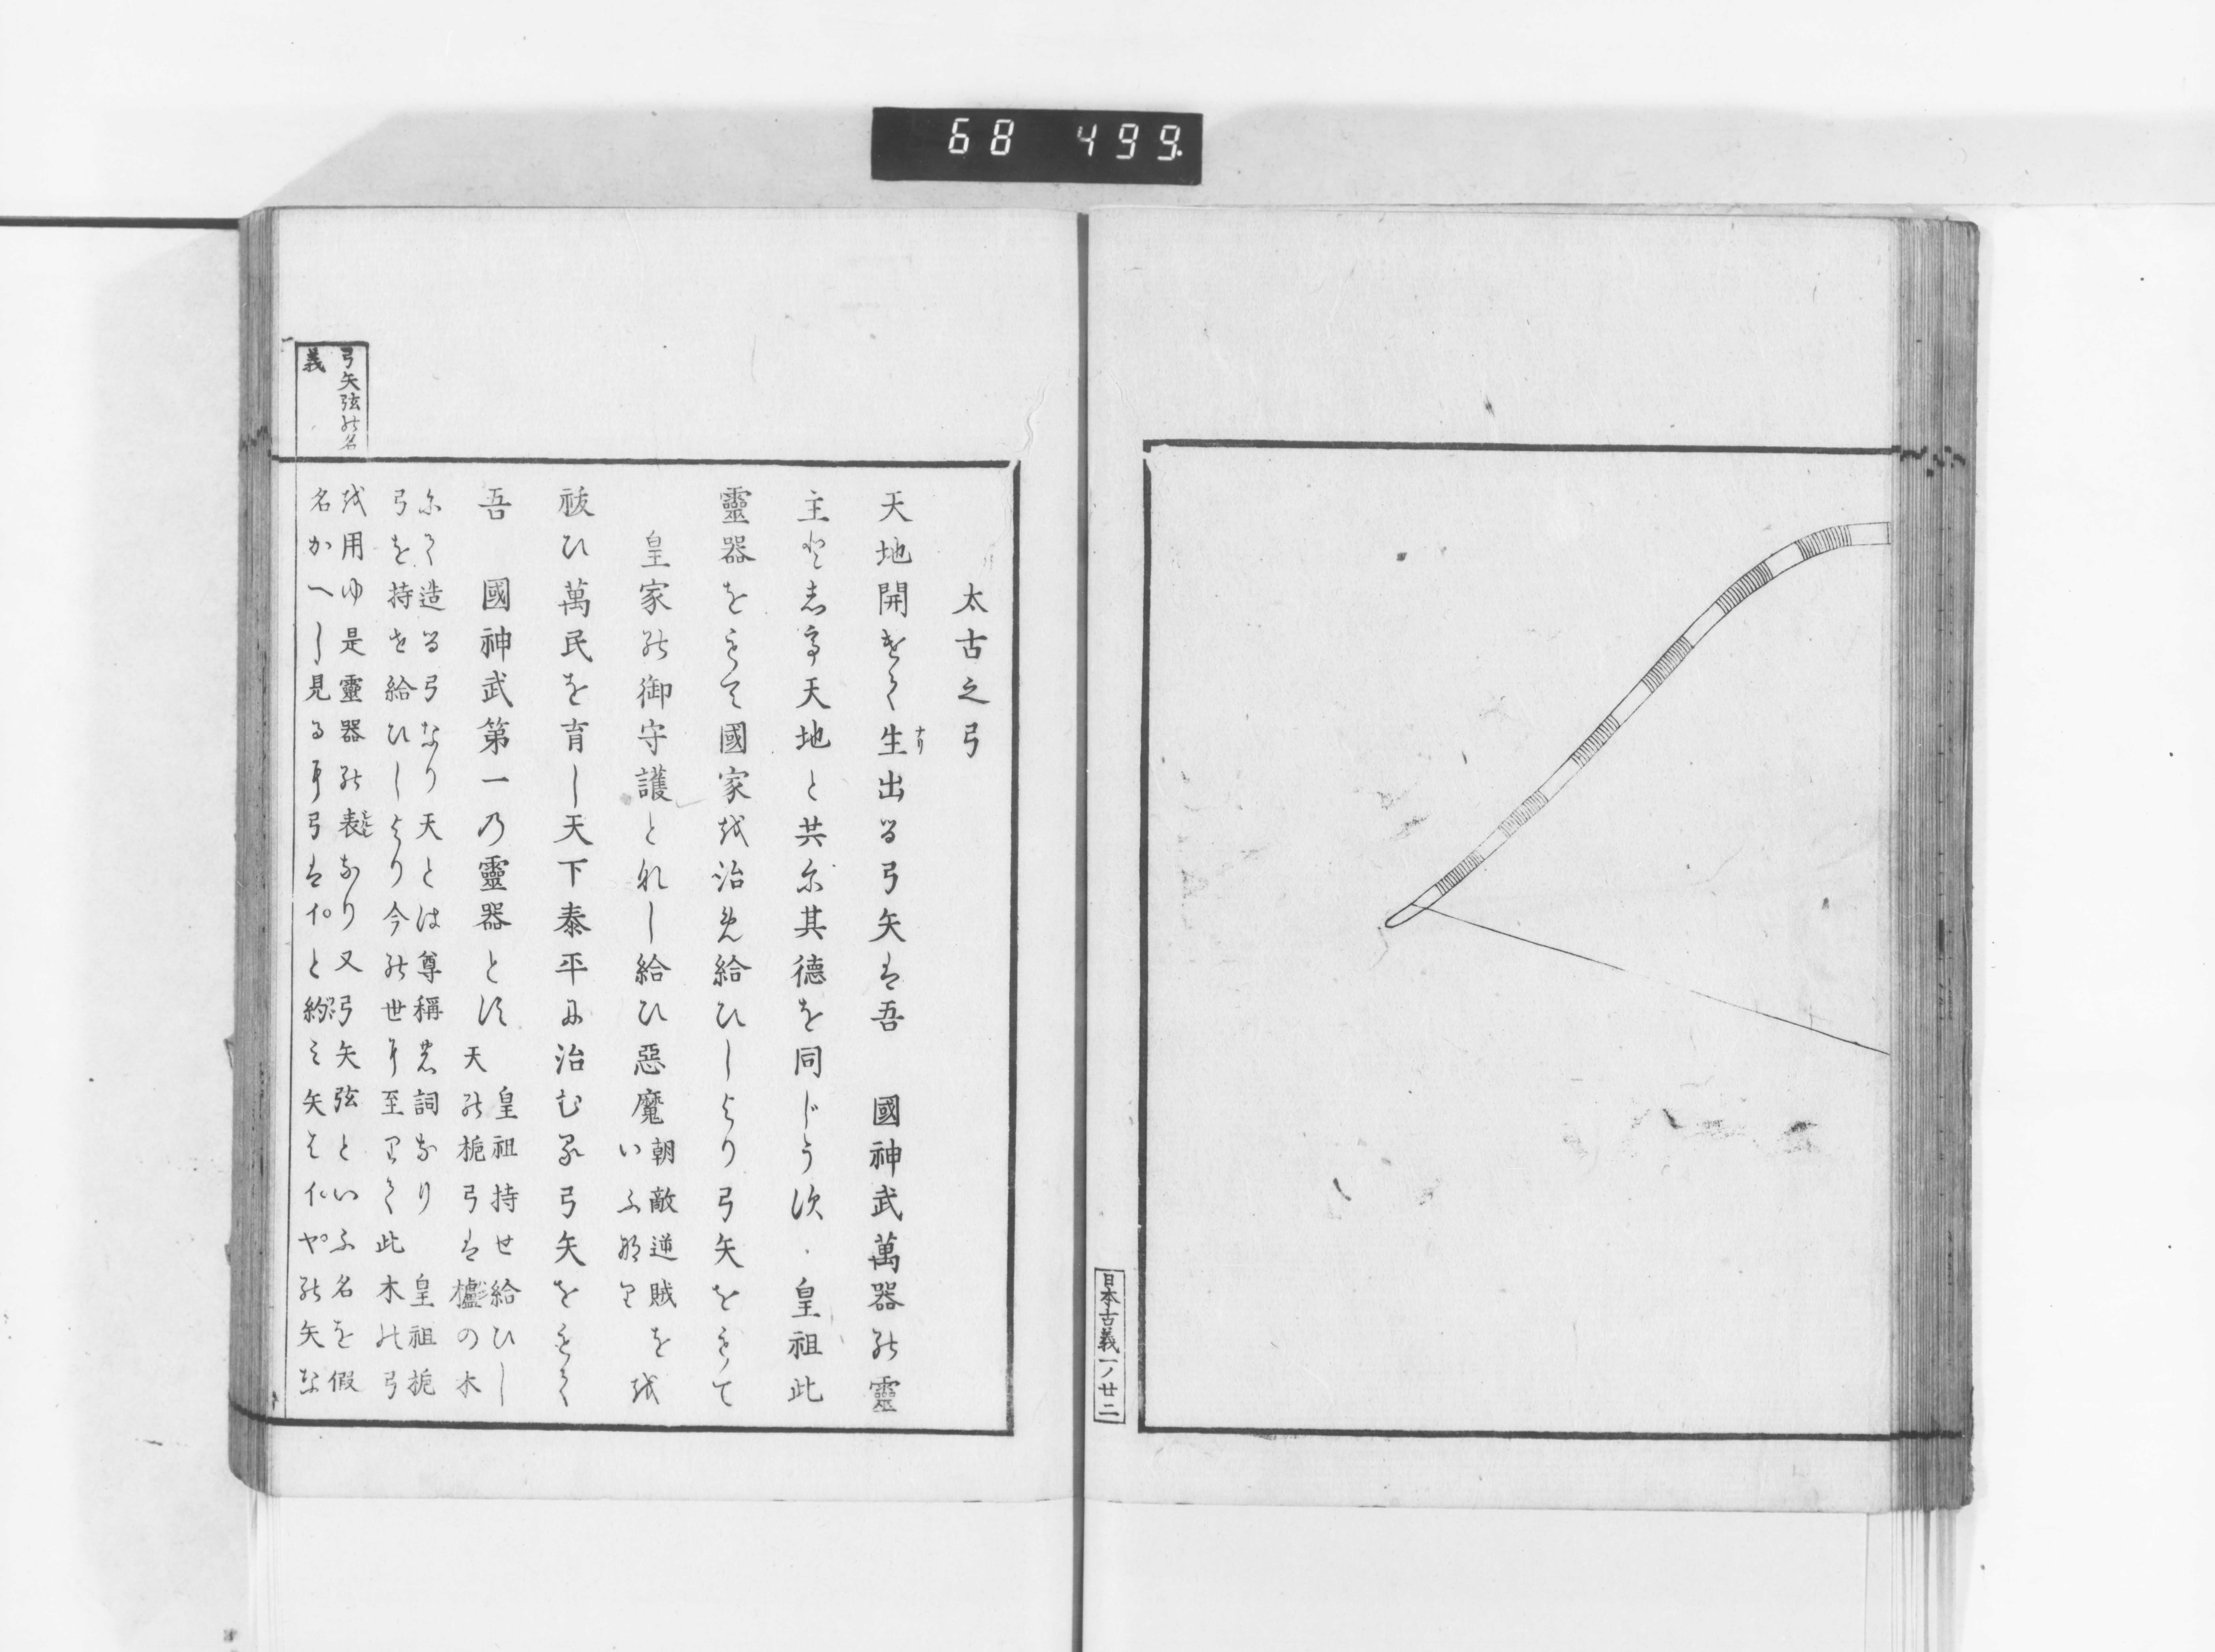 68 499.
日本古義 一ノ廿二
太古之弓
天地開きて生出る弓矢は吾 國神武萬器の靈
なり
主としる天地と共に其德を同じうす 皇祖此
靈器をもて國家を治め給ひしより弓矢をもて
皇家の御守護となし給ひ惡魔 朝敵逆賊を いふなり を
祓ひ萬民を育し天下泰平に治むる弓矢をもて
吾 國神武第一乃靈器とす 皇祖持せ給ひし
天の梔弓は櫨の木
にて造る弓なり天とは尊稱の詞なり 皇祖梔
弓を持せ給ひしより今の世に至りて此木の弓
を用ゆ是靈器の表なり又弓矢弦といふ名を假
名かへし見るに弓はイと約み矢はイヤの矢な
弓矢弦の名
義